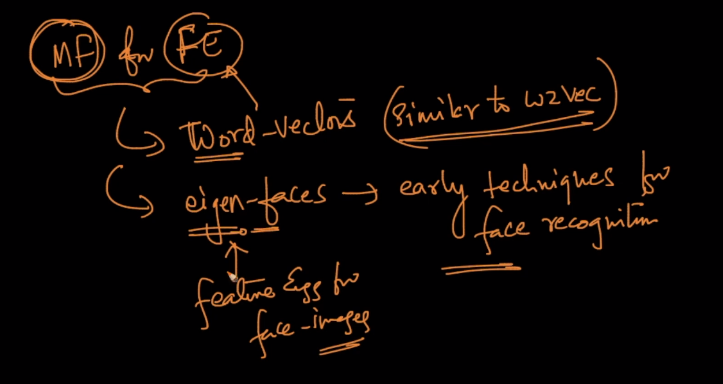 MF for FE
Word-vectors (similar to w2vec)
eigen-faces → early techniques for
face recognition
feature Engg for
face-images